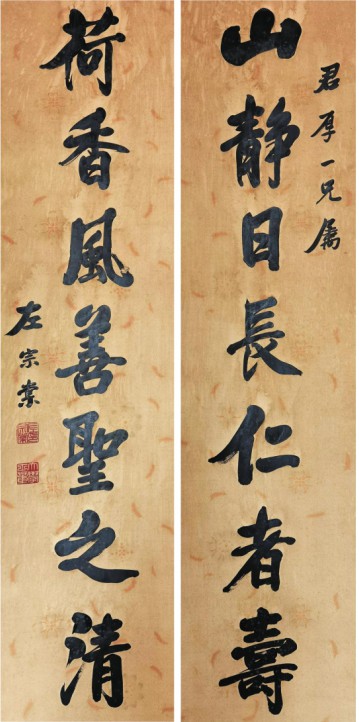 君厚一兄屬
山靜日長仁者壽
荷香風善聖之清
左宗棠